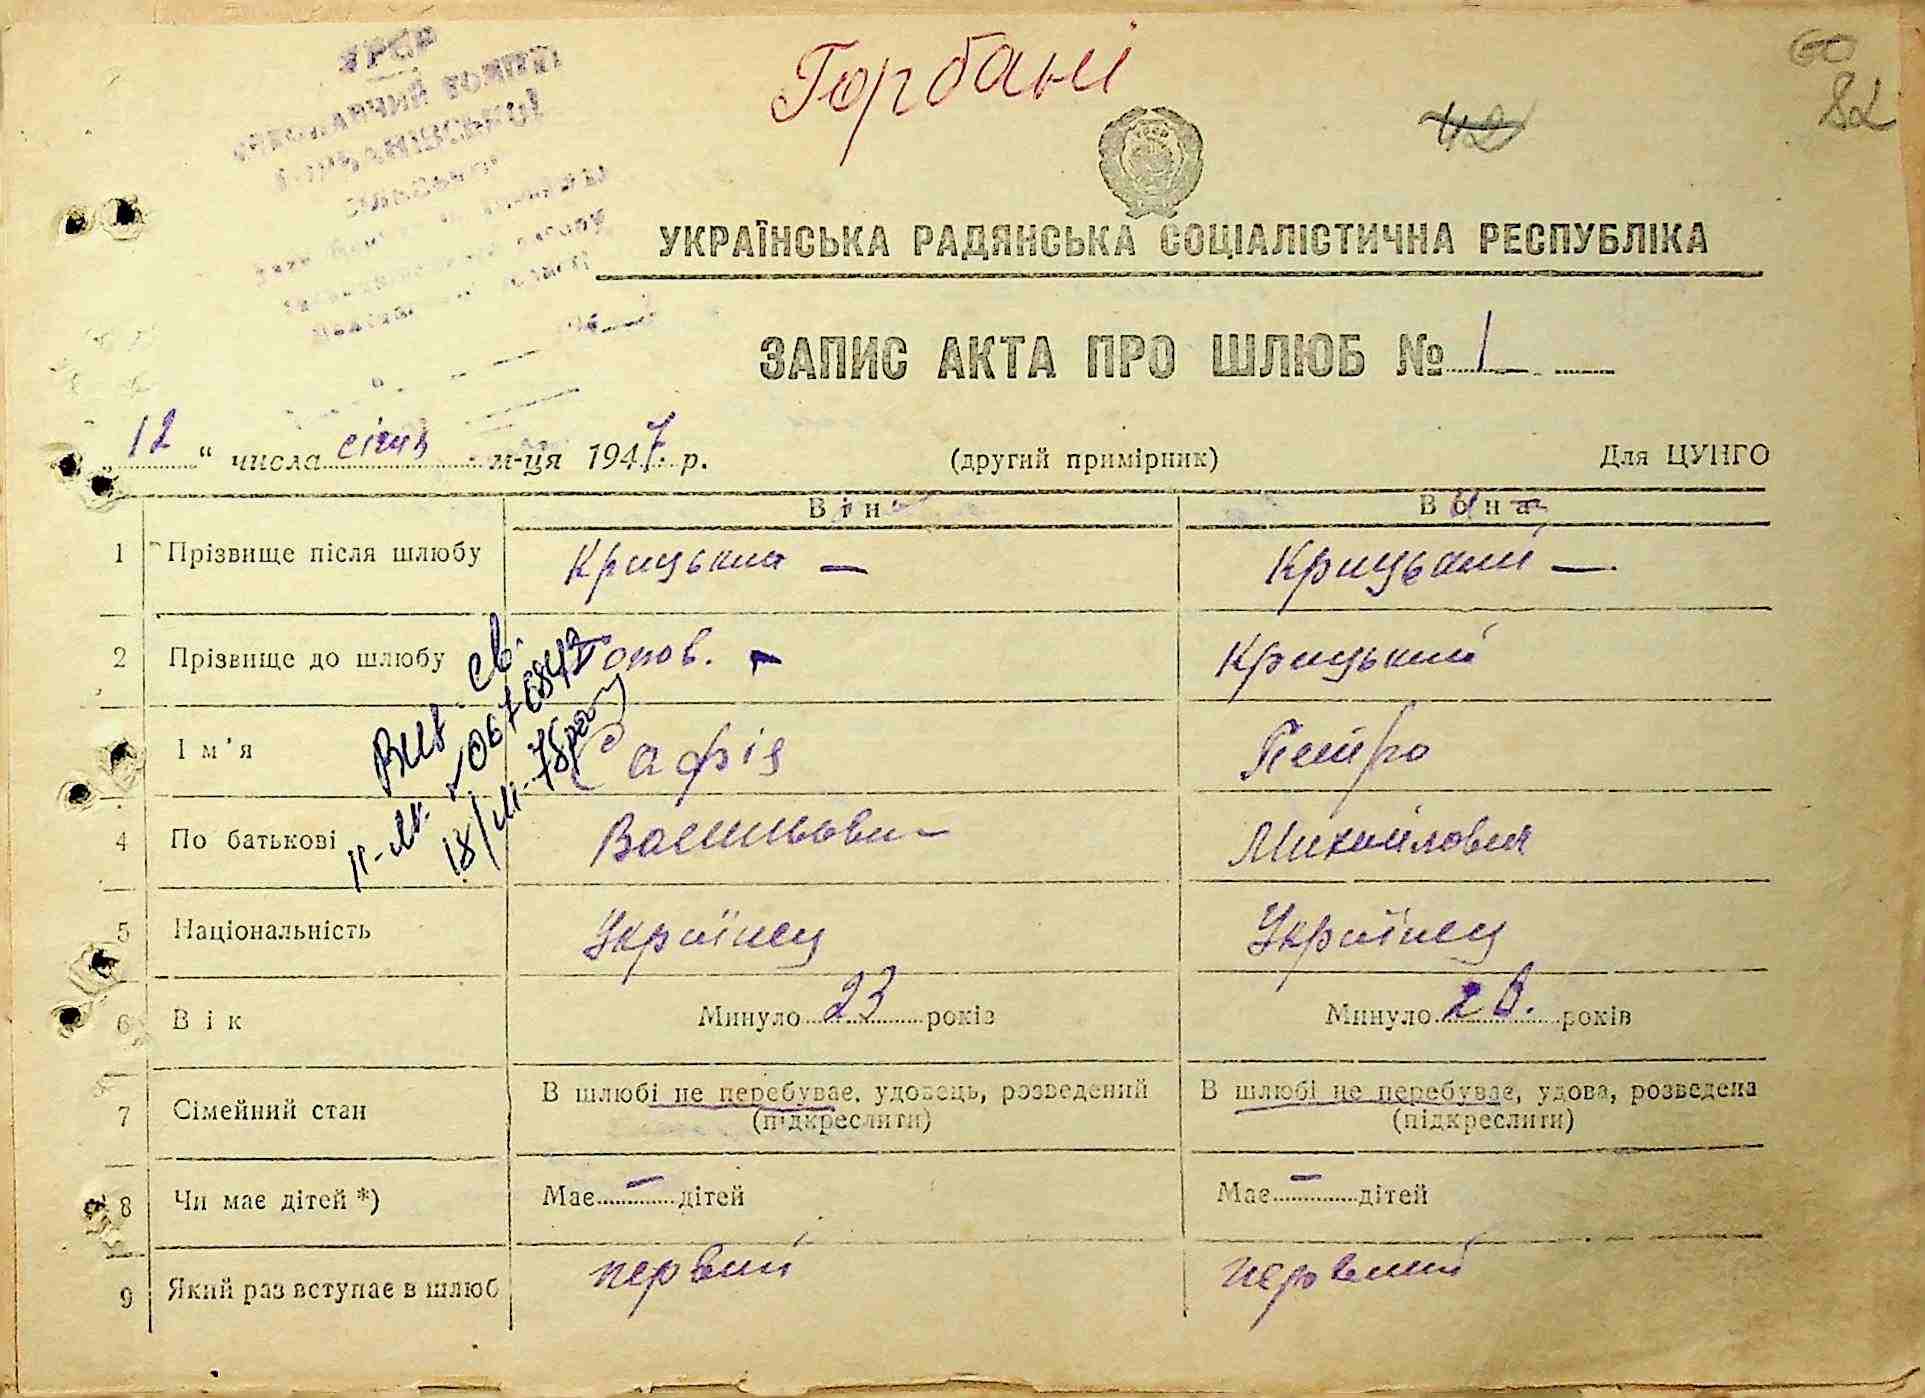 УРСР
Горбані
60
82
42
УКРАЇНСЬКА РАДЯНСЬКА СОЦІАЛІСТИЧНА РЕСПУБЛІКА
ЗАПИС АКТА ПРО ШЛЮБ № 1
„ 12 “ числа січня м-ця 1947 р. (другий примірник) Для ЦУНГО
Він Вона
1 Прізвище після шлюбу Крицький — Крицький —
2 Прізвище до шлюбу Попов. - Крицький
Ім'я Сафія Петро
4 По батькові Михайлович
5 Національність Українец Українец
6 Вік Минуло 23 років Минуло 20. років
7 Сімейний стан В шлюбі не перебуває, удовець, розведений В шлюбі не перебуває, удова, розведена
(підкреслити) (підкреслити)
8 Чи має дітей *) Має – дітей Має – дітей
9 Який раз вступає в шлюб первий первий